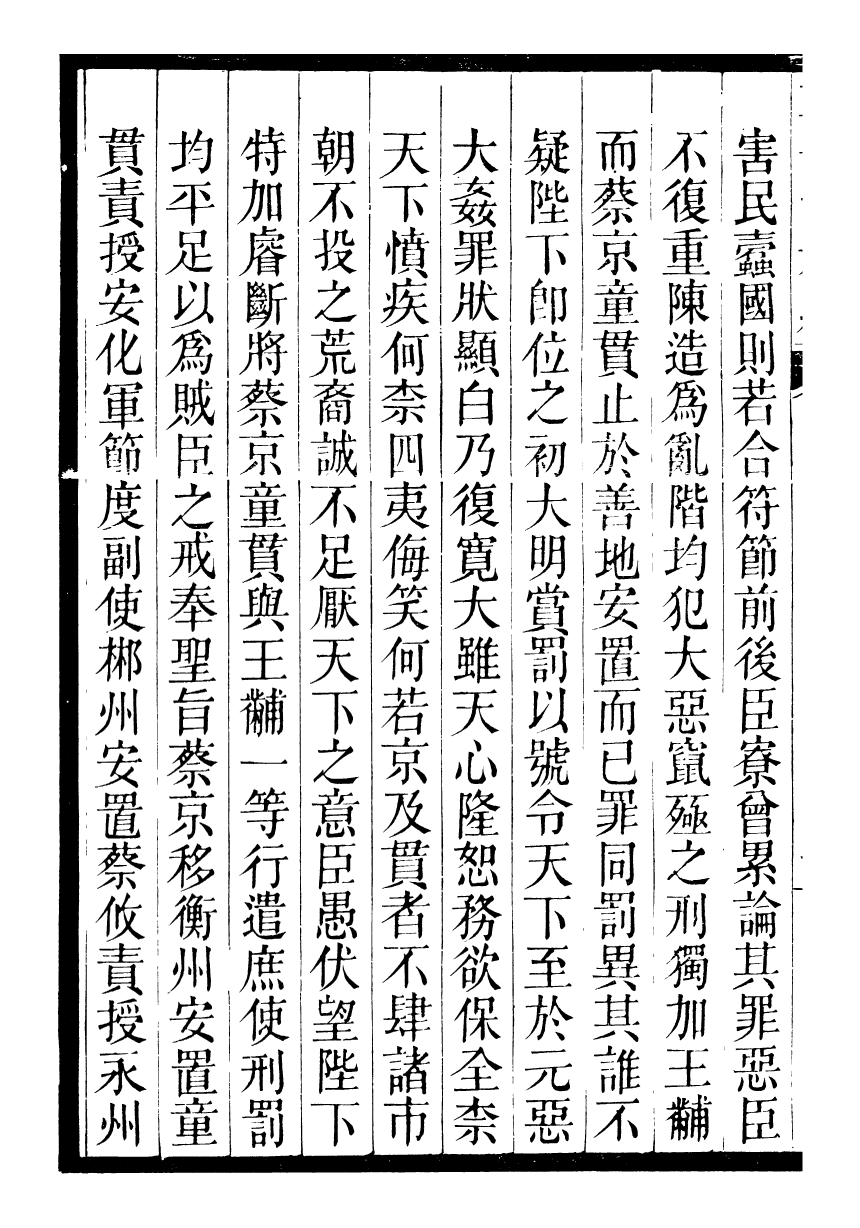 害民蠧國則若合符節前後臣寮曾累論其罪惡臣
不復重陳造爲亂階均犯大惡竄殛之刑獨加王黼
而蔡京童貫止於善地安置而已罪同罰異其誰不
疑陛下卽位之初大明賞罰以號令天下至於元惡
大姦罪狀顯白乃復寬大雖天心隆恕務欲保全柰
天下憤疾何柰四夷侮笑何若京及貫者不肆諸市
朝不投之荒裔誠不足厭天下之意臣愚伏望陛下
特加睿斷將蔡京童貫與王黼一等行遣庶使刑罰
均平足以爲賊臣之戒奉聖旨蔡京移衡州安置童
貫責授安化軍節度副使郴州安置蔡攸責授永州